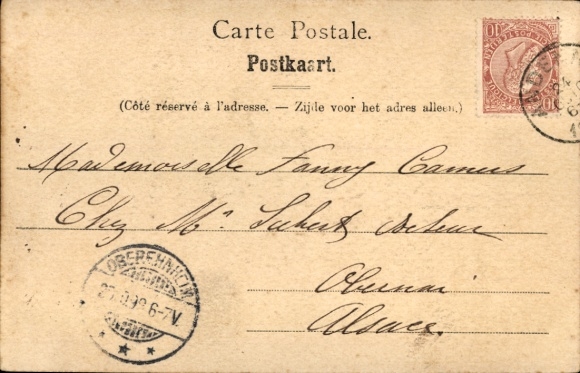 Carte Postale.
Postkaart.
(Côté réservé à l'adresse. — Zijde voor het adres alleen.)
10 10
Mademoiselle Fanny Camus
Chez Mr
Obernai
Alsace
OBEREHNHEIM
6-7V.